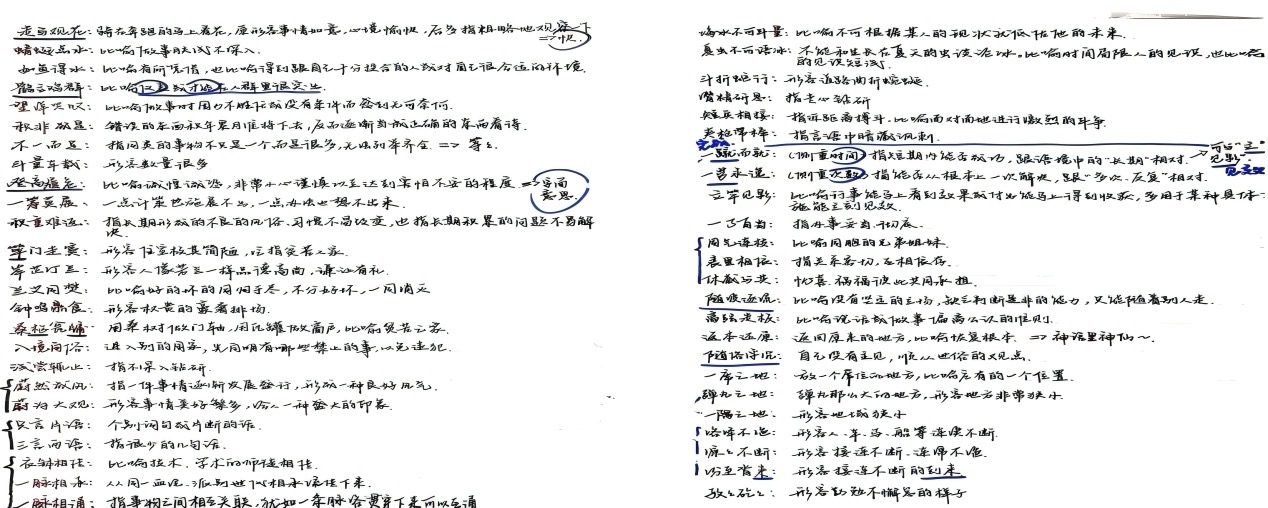 走马观花：骑在奔跑的马上看花，原形容事情如意，心境愉快，后多指粗略地观察一下
=>快。
蜻蜓点水：比喻做事肤浅不深入。
如鱼得水：比喻有所凭借，也比喻得到跟自己十分投合的人或对自己很合适的环境。
鹤立鸡群：比喻仪表或才能在人群里很突出
望洋兴叹：比喻做事时因力不胜任或没有条件而感到无可奈何。
积非成是：错误的东西积年累月流传下去，反而逐渐当成正确的东西看待。
不一而足：指同类的事物不只是一个而是很多，无法列举齐全 => 等等
斗量车载：形容数量很多
登高履危：比喻诚惶诚恐，非常小心谨慎以至达到害怕不安的程度。=>字面意思
一筹莫展：一点计策也施展不出，一点办法也想不出来。
积重难返：指长期形成的不良的风俗、习惯不易改变，也指长期积累的问题不易解
决。
筚门圭窦：形容住室极其简陋，泛指贫苦人家。
岸芷汀兰：形容人像芳兰一样品德高尚，谦让有礼
兰艾同焚：比喻好的坏的同归于尽，不分好坏，一同消灭
钟鸣鼎食：形容权贵的豪奢排场。
桑枢瓮牖：用桑树做门轴，用瓦罐做窗户，比喻贫苦之家。
入境问俗：进入别的国家，先问明有哪些禁止的事，以免违犯.
浅尝辄止：指不深入钻研.
蔚然成风：指一件事情逐渐发展盛行，形成一种良好风气.
蔚为大观：形容事情美好繁多，给人一种盛大的印象.
只言片语：个别词句或片断的话.
三言两语：指很少的几句话.
衣钵相传：比喻技术、学术的师徒相传.
一脉相承：从同一血统、派别世代相承流传下来.
一脉相通：指事物之间相互关联，犹如一条脉络贯穿下来可以互通
海水不可斗量：比喻不可根据某人的现状就低估他的未来.
夏虫不可语冰：不能和生长在夏天的虫谈论冰。比喻时间局限人的见识，也比喻人
的见识短浅.
斗折蛇行：形容道路曲折蜿蜒.
覃精研思：指专心钻研
短兵相接：指近距离搏斗.比喻面对面地进行激烈的斗争.
夹枪带棒：指言语中暗藏讽刺.
一蹴而就：(侧重时间)指短期内能否成功，跟语境中的"长期"相对.
一劳永逸：(侧重次数)指能否从根本上一次解决，跟"多次、反复"相对.
立竿见影：比喻行事能马上看到效果或付出能马上得到收获，多用于某种具体
措施能立刻见效.
一了百当：指办事妥当、彻底.
同气连枝：比喻同胞的兄弟姐妹.
表里相依：指关系密切，互相依存.
休戚与共：忧喜、祸福彼此共同承担.
随波逐流：比喻没有坚定的立场，缺乏判断是非的能力，只能随着别人走.
离弦走板：比喻说话或做事偏离公认的准则.
返本还原：返回原来的地方，比喻恢复根本. => 神话里神仙～.
随俗浮沉：自己没有主见，顺从世俗的观点.
一席之地：放一个席位的地方，比喻应有的一个位置.
弹丸之地：弹丸那么大的地方，形容地方非常狭小
一隅之地：形容地域狭小
络绎不绝：形容人、车、马、船等连续不断.
源源不断：形容接连不断、连绵不绝
纷至沓来：形容接连不断的到来
孜孜矻矻：形容勤勉不懈怠的样子